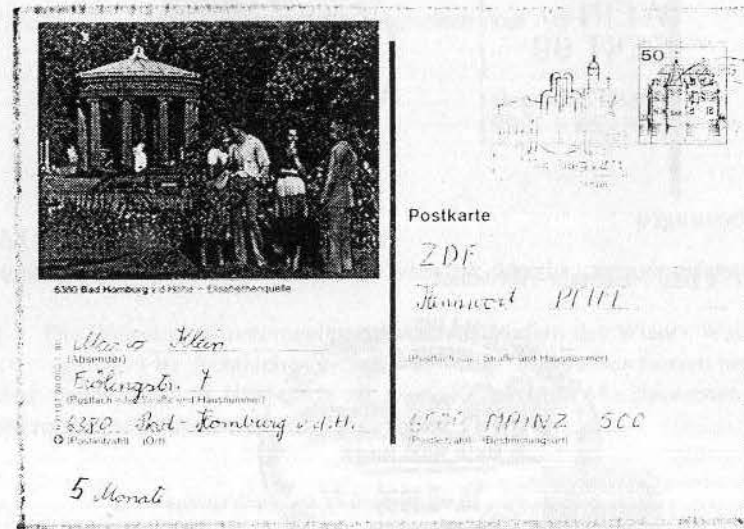 50
6380 Bad Homburg v d Höhe – Elisabethenquelle
Postkarte
ZDF
Kennwort
(Postfach oder Straße und Hausnummer)
6500 MAINZ 500
(Postleitzahl) (Bestimmungsort)
Mario Klein
(Absender)
Frölingstr. 7
(Postfach oder Straße und Hausnummer)
6380 Bad-Homburg v.d.H.
(Postleitzahl) (Ort)
5 Monate